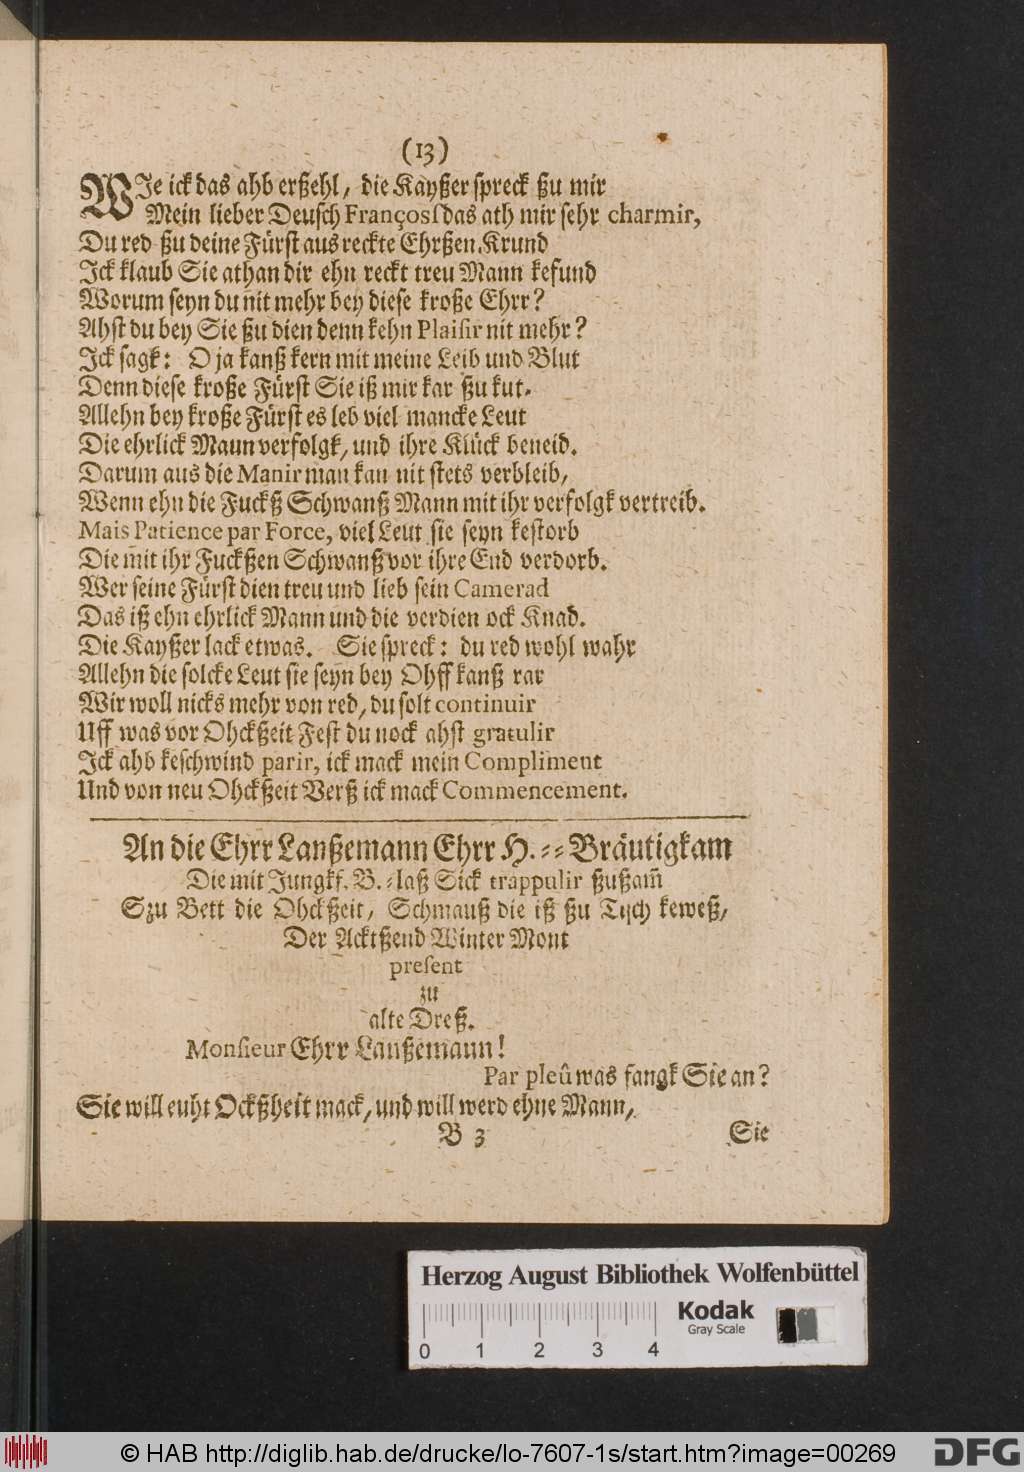 (13)
WJe ick das ahb erßehl, die Kayßer spreck ßu mir
Mein lieber Deusch François! das ath mir sehr charmir,
Du red ßu deine Fürst aus reckte Ehrßen Krund
Jck klaub Sie athan dir ehn reckt treu Mann kefund
Worum seyn du nit mehr bey diese kroße Ehrr?
Ahst du bey Sie ßu dien denn kehn Plaisir nit mehr?
Jck sagk: O ja kanß kern mit meine Leib und Blut
Denn diese kroße Fürst Sie iß mir kar ßu kut.
Allehn bey kroße Fürst es leb viel mancke Leut
Die ehrlick Mann verfolgk, und ihre Klück beneid.
Darum aus die Manir man kan nit stets verbleib,
Wenn ehn die Fuckß Schwanß Mann mit ihr verfolgk vertreib.
Mais Patience par Force, viel Leut sie seyn kestorb
Die mit ihr Fuckßen Schwanß vor ihre End verdorb.
Wer seine Fürst dien treu und lieb sein Camerad
Das iß ehn ehrlick Mann und die verdien ock Knad.
Die Kayßer lack etwas. Sie spreck: du red wohl wahr
Allehn die solcke Leut sie seyn bey Ohff kanß rar
Wir woll nicks mehr von red, du solt continuir
Uff was vor Ohckßeit Fest du nock ahst gratulir
Jck ahb keschwind parir, ick mack mein Compliment
Und von neu Ohckßeit Verß ick mack Commencement.
An die Ehrr Lanßemann Ehrr H. -- Bräutigkam
Die mit Jungkf. B. - laß Sick trappulir ßußam̃
Szu Bett die Ohckßeit, Schmauß die iß ßu Tisch keweß,
Der Acktßend Winter Mont
present
zu
alte Dreß.
Monsieur Ehrr Lanßemann!
Par pleû was fangk Sie an?
Sie will euht Ockßheit mack, und will werd ehne Mann,
B 3 Sie
Herzog August Bibliothek Wolfenbüttel
Kodak
Gray Scale
0 1 2 3 4
© HAB http://diglib.hab.de/drucke/lo-7607-1s/start.htm?image=00269
DFG